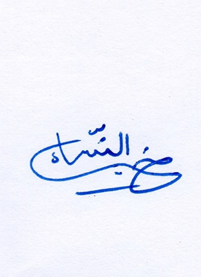 خير النّساء